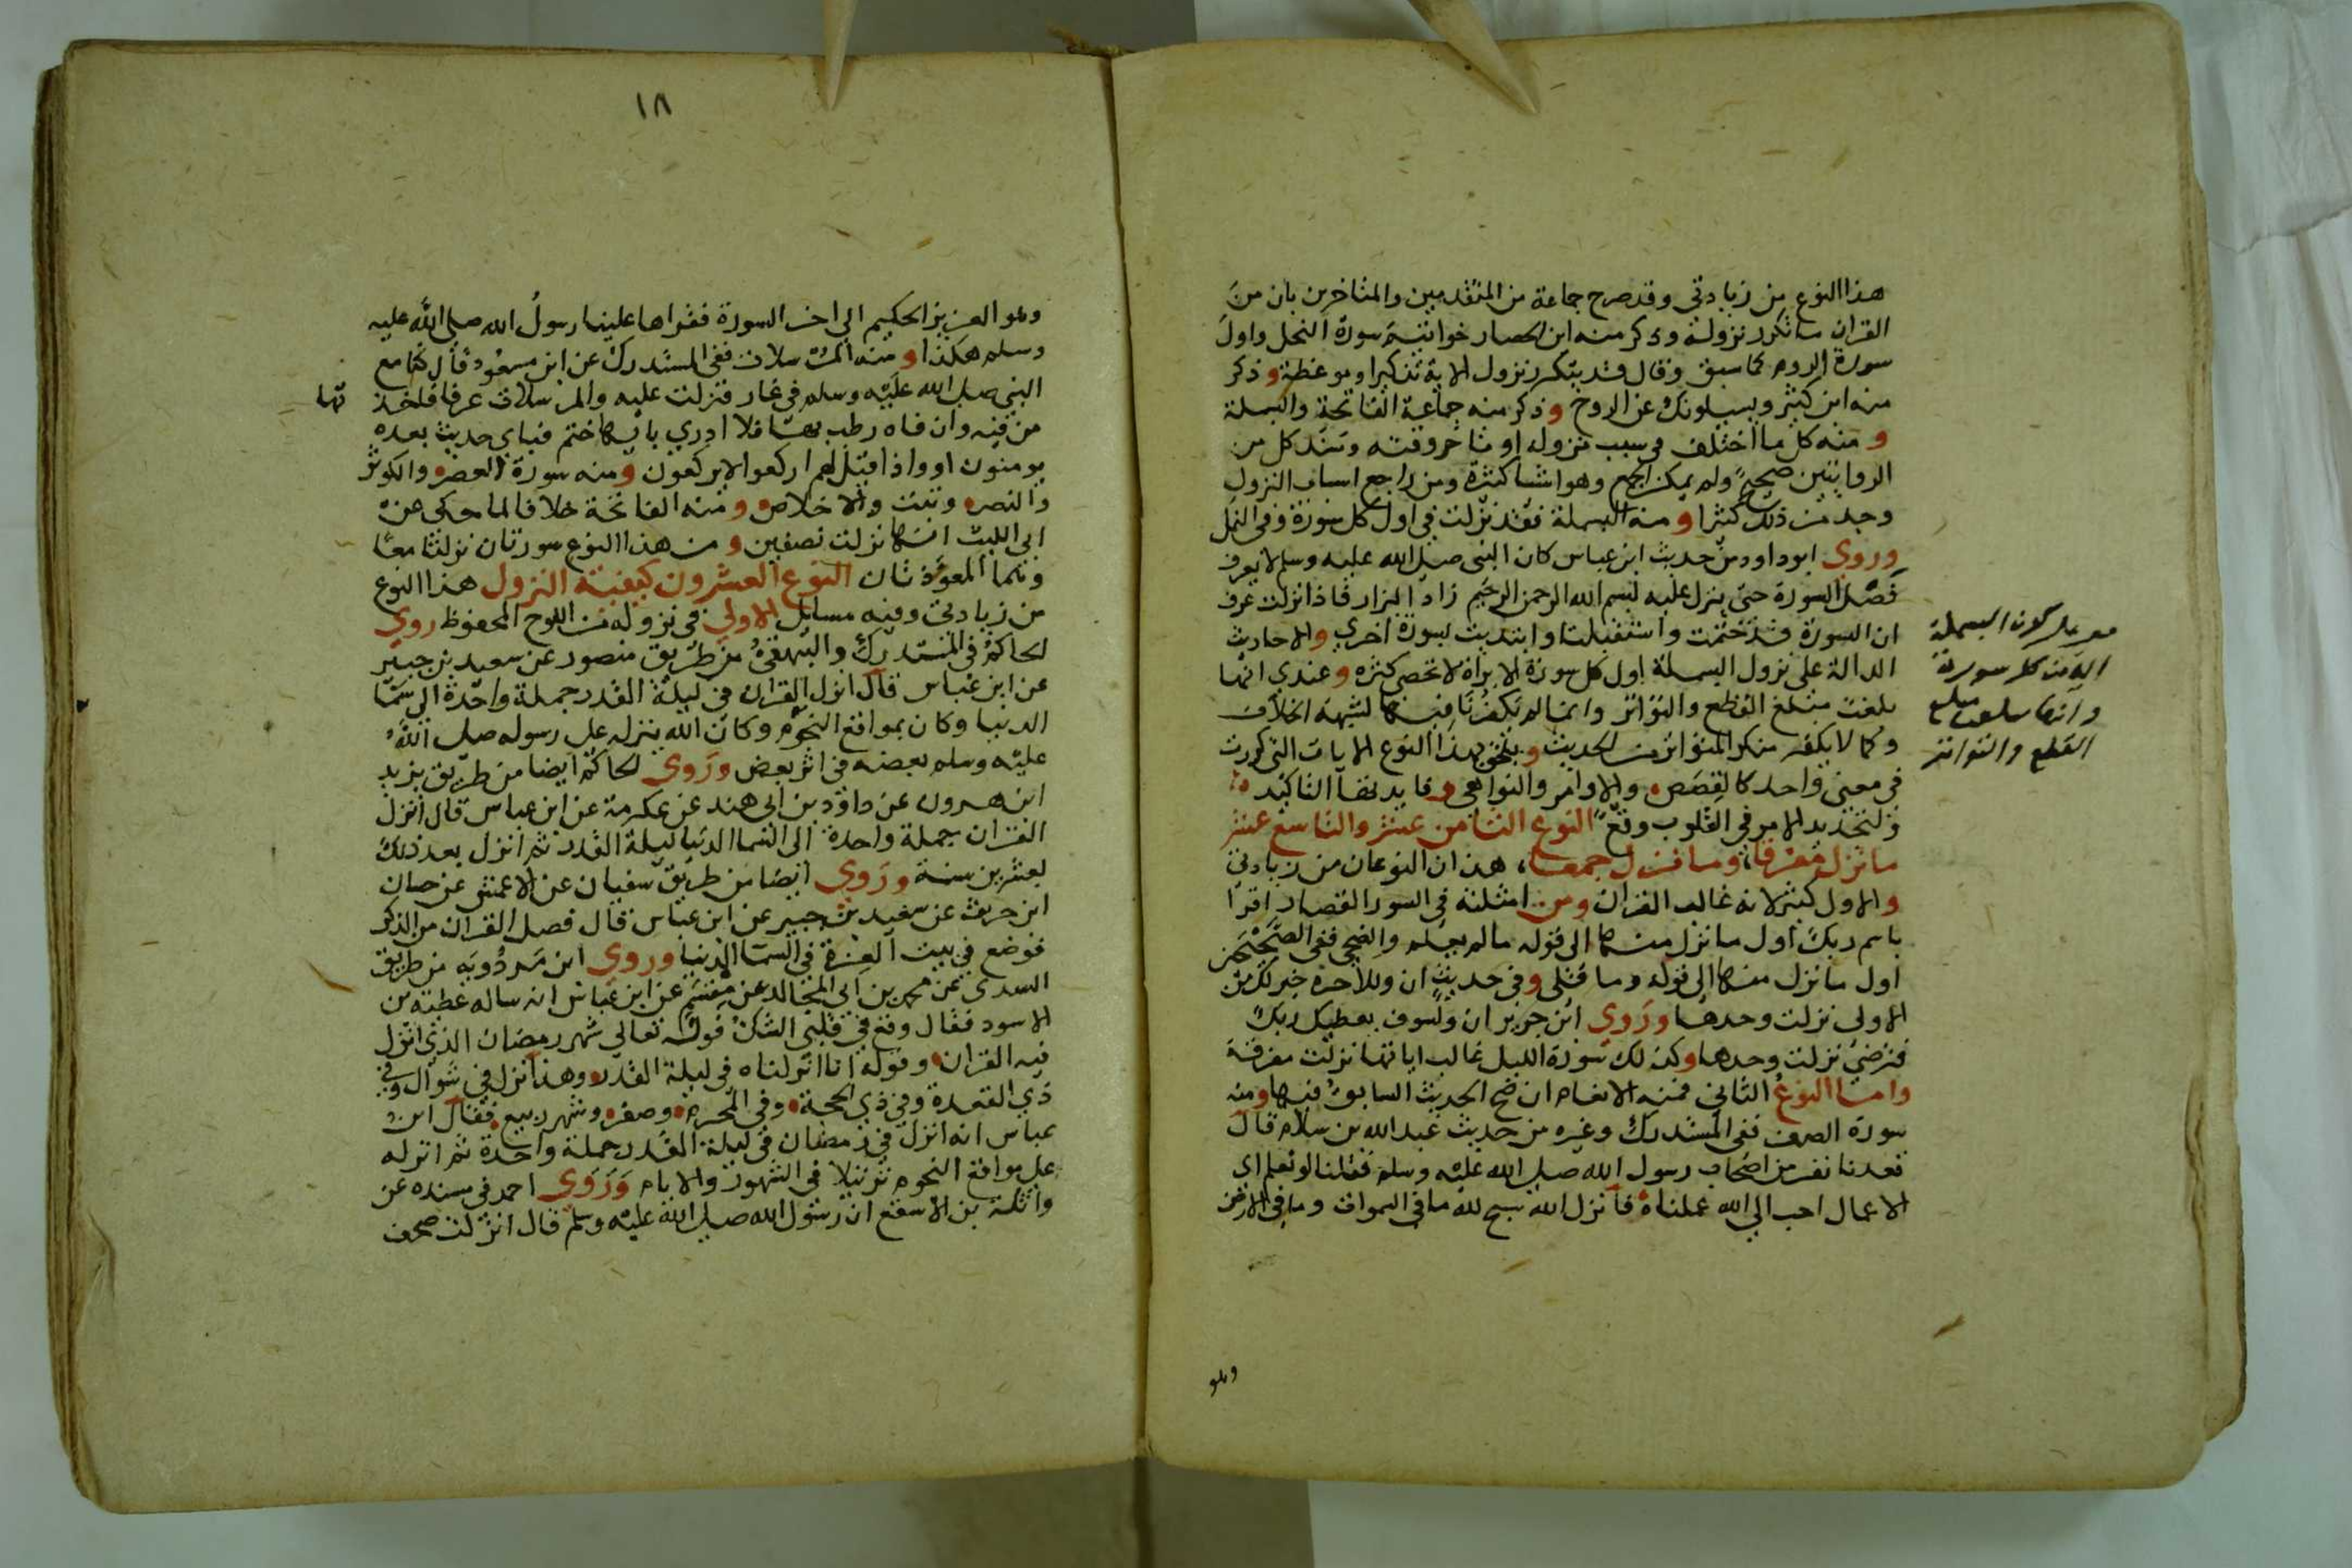 هذا النوع من زيادتي وقد صرح جماعة من المتقدمين والمتاخرين بان من
القران ما تكرر نزوله وذكر منه ابن الحصار خواتيم سورة النحل واول
سورة الروم كما سبق وقال قد يتكرر نزول الاية تذكيرا وموعظة وذكر
منه ابن كثير ويسيلونك عن الروح وذكر منه جماعة الفاتحة والبسملة
ومنه كل ما اختلف في سبب نزوله او تاخر وقته وسند كل من
الروايتين صحيح ولم يمكن الجمع وهو اشيا كثيرة ومن راجع اسباب النزول
وجد من ذلك كثيرا ومنه البسملة فقد نزلت في اول كل سورة وفي النمل
وروي ابو داود من حديث ابن عباس كان النبي صلى الله عليه وسلم لا يعرف
فصل السورة حتى ينزل عليه بسم الله الرحمن الرحيم زاد البزار فاذا نزلت عرف
ان السورة قد ختمت واستقبلت او ابتديت بسورة اخري والاحاديث
الدالة على نزول البسملة اول كل سورة الا براة لا تحصى كثره وعندي انها
بلغت مبلغ القطع والتواتر وانما لم تكفر نافيها لشبهة الخلاف
وكما لا يكفر منكر المتواتر من الحديث ويلحق بهذا النوع الايات التي كررت
في معنى واحد كالقصص والاوامر والنواهي وفايدتها التاكيد
ولتجديد الامر في القلوب وقع النوع الثامن عشر والتاسع عشر
ما نزل مفرقا وما نزل جمعا هذان النوعان من زيادتي
والاول كثير لانه غالب القران ومن امثلته في السور القصار اقرا
باسم ربك اول ما نزل منها الى قوله ما لم يعلم والضحى ففي الصحيحين
اول ما نزل منها الى قوله وما قلى وفي حديث ان وللاخرة خير لك من
الاولى نزلت وحدها وروي ابن جرير ان ولسوف يعطيك ربك
فترضى نزلت وحدها وكذلك سورة الليل غالب اياتها نزلت مفرقة
واما النوع الثاني فمنه الانعام ان صح الحديث السابق فيها ومنه
سورة الصف ففي المستدرك وغيره من حديث عبد الله بن سلام قال
قعدنا نفر من اصحاب رسول الله صلى الله عليه وسلم فقلنا لو نعلم اي
الاعمال احب الى الله عملناه فانزل الله سبح لله ما في السموات وما في الارض
كون البسملة
اية من كل سورة
وانها بلغت مبلغ
القطع والتواتر
وهو
١٨
وهو العزيز الحكيم الى اخر السورة فقراها علينا رسول الله صلى الله عليه
وسلم هكذا ومنه المرسلات ففي المستدرك عن ابن مسعود قال كنا مع
النبي صلى الله عليه وسلم في غار فنزلت عليه والمرسلات عرفا فاخذ تها
من فيه وان فاه رطب بها فلا ادري بايها ختم فباي حديث بعده
يومنون او واذا قيل لهم اركعوا لا يركعون ومنه سورة العصر والكوثر
والنصر وتبت والاخلاص ومنه الفاتحة خلافا لما حكى عن
ابي الليث انها نزلت نصفين ومن هذا النوع سورتان نزلتا معا
وهما المعوذتان النوع العشرون كيفية النزول هذا النوع
من زيادتي وفيه مسايل الاولى في نزوله من اللوح المحفوظ روي
الحاكم في المستدرك والبيهقي من طريق منصور عن سعيد بن جبير
عن ابن عباس قال انزل القران في ليلة القدر جملة واحدة الى سما
الدنيا وكان بمواقع النجوم وكان الله ينزله على رسوله صلى الله
عليه وسلم بعضه في اثر بعض وروي الحاكم ايضا من طريق يزيد
ابن هرون عن داود بن ابي هند عن عكرمة عن ابن عباس قال انزل
القران جملة واحدة الى السما الدنيا ليلة القدر ثم انزل بعد ذلك
بعشرين سنة وروي ايضا من طريق سفيان عن الاعمش عن حسان
ابن حريث عن سعيد بن جبير عن ابن عباس قال فصل القران من الذكر
فوضع في بيت العزة في السما الدنيا وروي ابن مردويه من طريق
السدي عن محمد بن ابي المجالد عن مقسم عن ابن عباس انه ساله عطية بن
الاسود فقال وقع في قلبي الشك قوله تعالى شهر رمضان الذي انزل
فيه القران وقوله انا انزلناه في ليلة القدر وهذا انزل في شوال وفي
ذي القعدة وفي ذي الحجة وفي المحرم وصفر وشهر ربيع فقال ابن
عباس انه انزل في رمضان في ليلة القدر جملة واحدة ثم انزله
على مواقع النجوم ترتيلا في الشهور والايام وروي احمد في مسنده عن
واثلة بن الاسقع ان رسول الله صلى الله عليه وسلم قال انزلت صحف